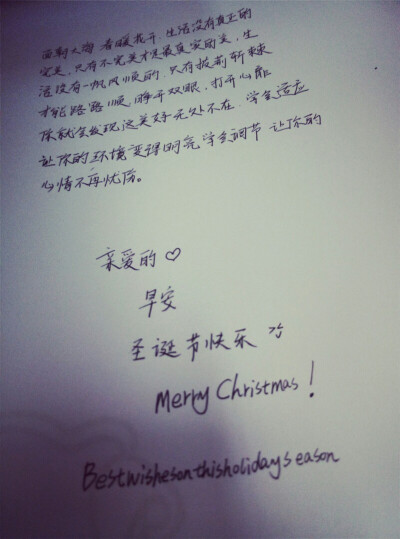 面朝大海 春暖花开，生活没有真正的
完美，只有不完美才是最真实的美，生
活没有一帆风顺的，只有披荆斩棘
才能路路顺，睁开双眼，打开心扉
你就会发现这美好无处不在，学会适应
让你的环境变得明亮，学会调节 让你的
心情不再忧伤。
亲爱的♡
早安
圣诞节快乐
Merry Christmas!
Bestwishesonthisholidayseason